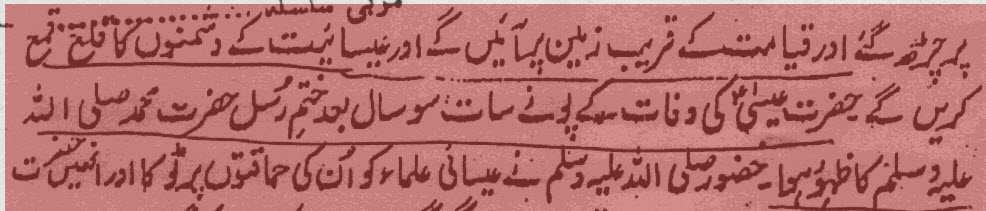 پر چڑھ گئے اور قیامت کے قریب زمین پر آئیں گے اور عیسائیت کے دشمنوں کا قلع قمع
کریں گے حضرت عیسیٰؑ کی وفات کے پونے سات سو سال بعد ختم رُسل حضرت محمد صلی اللہ
علیہ وسلم کا ظہور ہوا۔ حضور صلی اللہ علیہ وسلم نے عیسائی علماء کو اُن کی حماقتوں پر ٹوکا اور انھیں حضرت